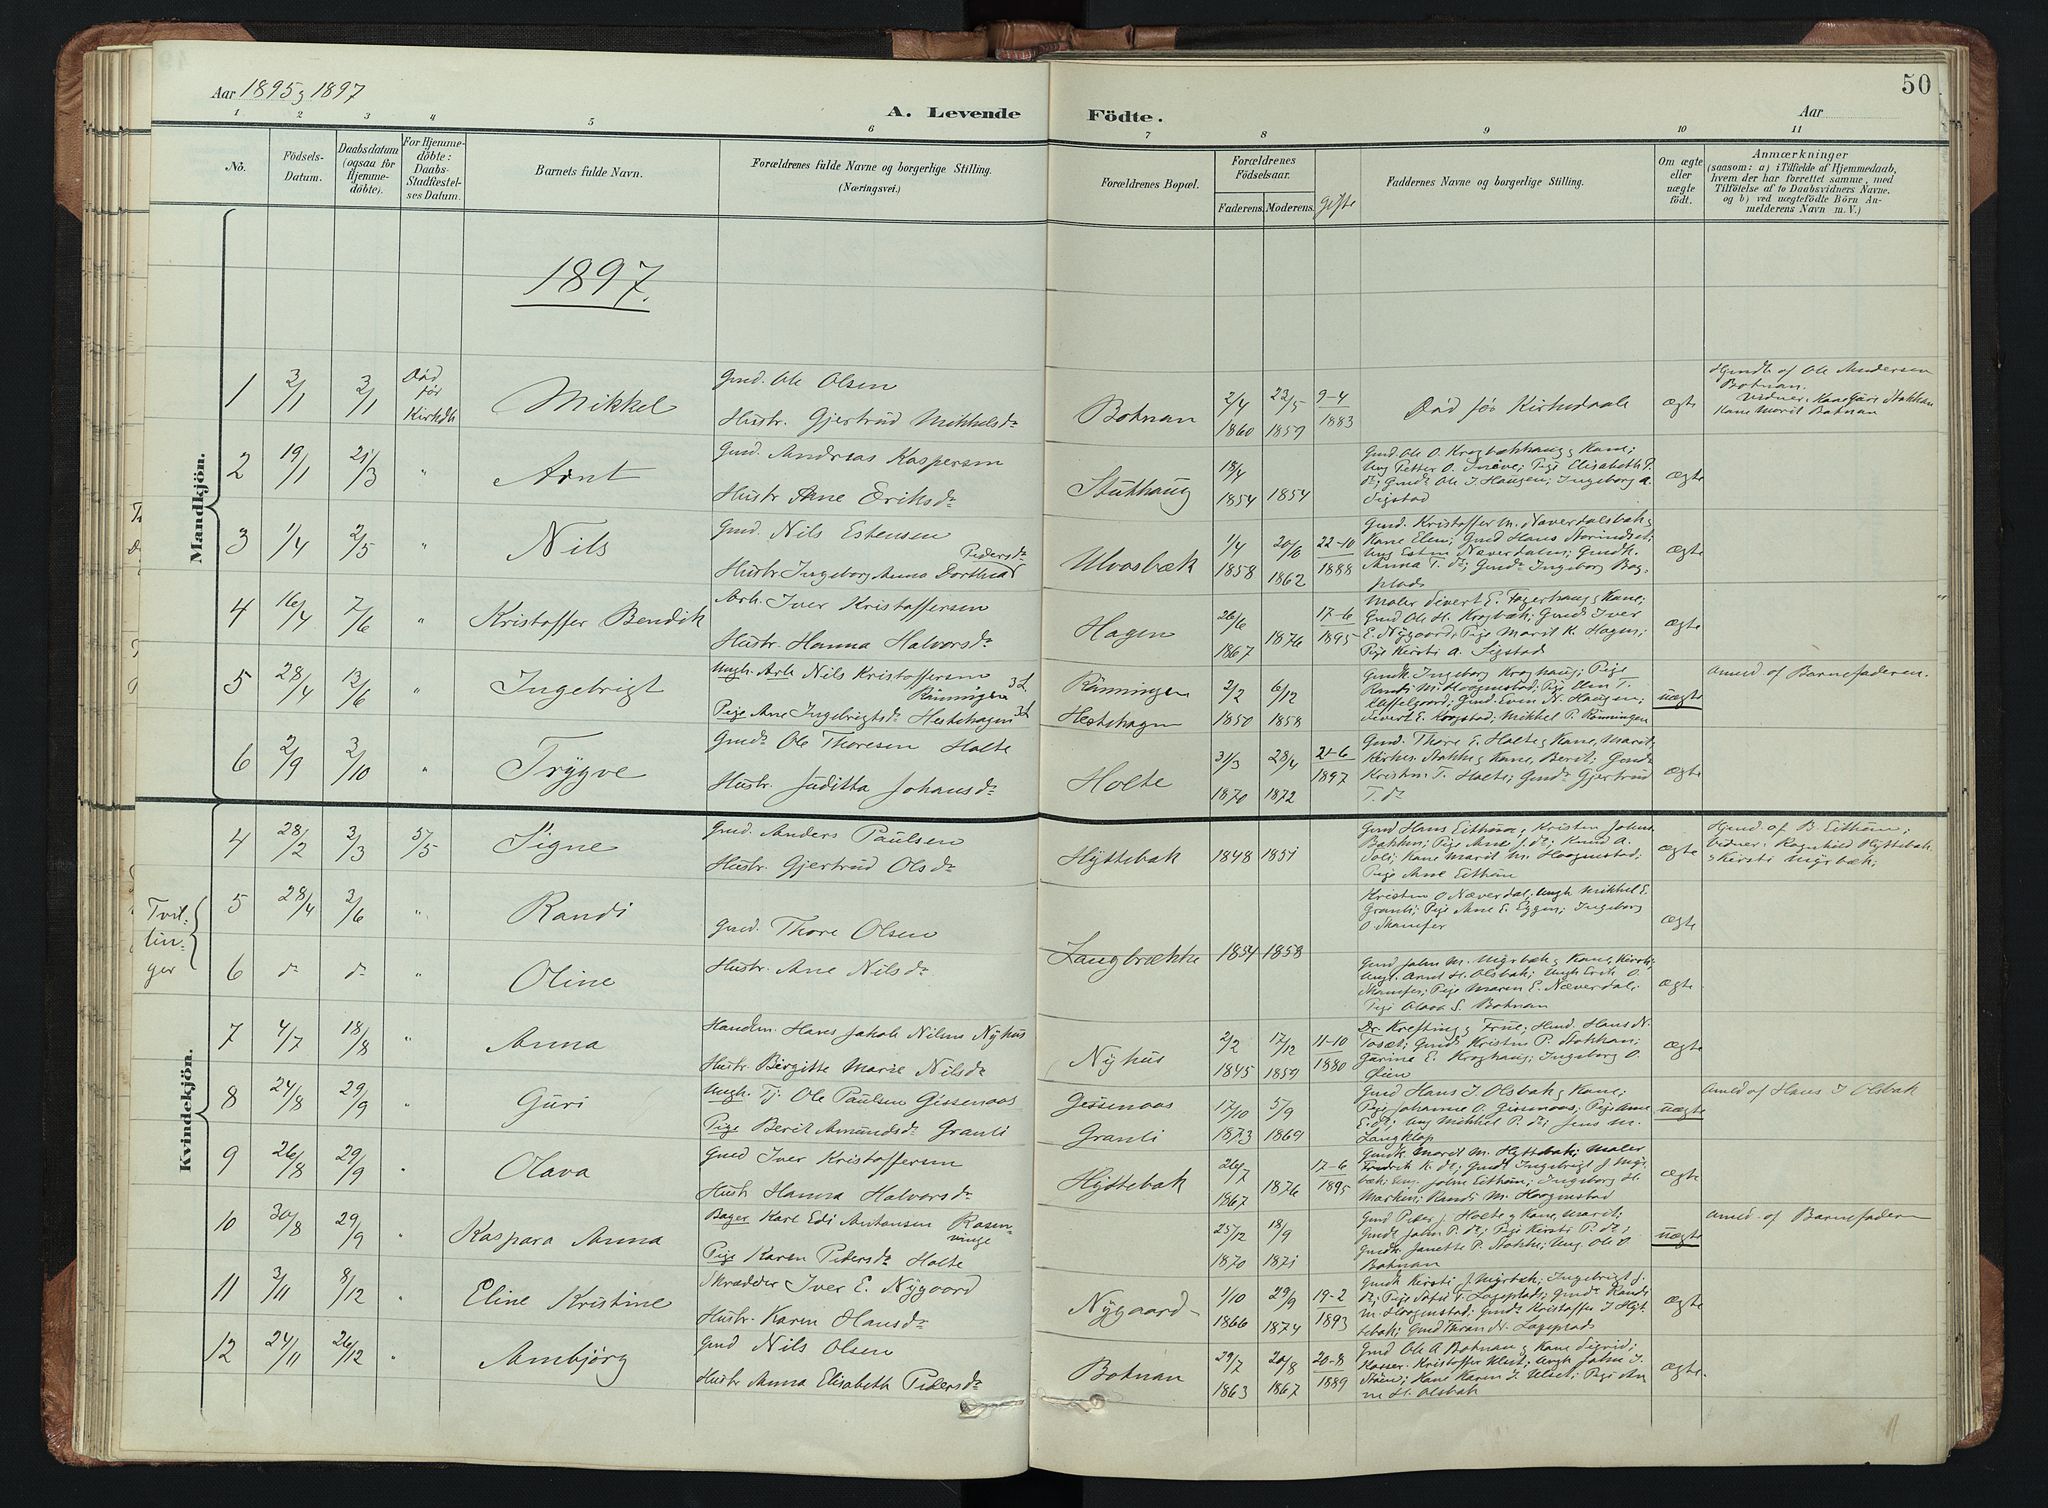 Aar 1895 og 1897
A. Levende Födte.
Aar
50
1 2 3 4 5 6 7 8 9 10 11
No.
Födsels-
Datum.
Daabsdatum
(ogsaa for
Hjemme-
döbte).
For Hjemme-
döbte:
Daabs-
Stadfæstel-
ses Datum.
Barnets fulde Navn.
Forældrenes fulde Navne og borgerlige Stilling.
(Næringsvei.)
Forældrenes Bopæl.
Forældrenes
Födselsaar.
Faderens. Moderens. Gifte
Faddernes Navne og borgerlige Stilling.
Om ægte
eller
uægte
födt.
Anmærkninger
(saasom: a) i Tilfælde af Hjemmedaab,
hvem der har forrettet samme, med
Tilföielse af to Daabsvidners Navne.
og b) ved uægtefödte Börn An-
melderens Navn m. V.)
1897.
Mandkjön.
1 2/1 3/1 Död för Kirkedb
Mikkel
Gmd. Ole Olsen
Hustr. Gjertrud Mikkelsdr
Botnan
2/4 1860 22/5 1859 9-4 1883
Död för Kirkedaab
ægte
Hjmdb af Ole Andersen
Botnan.
Vidner, Kane Guri Stokkan
Kane Marit Botnan
2 19/1 21/3 "
Arnt
Gmd. Andreas Kaspersen
Hustr Ane Eriksdr
Stubhaug
18/4 1854 1854
Gmd Ole O. Krogbækhaug og Kane;
Ung Petter O. Snöve; Pige Elisabeth P.
dr; Gmds Ole J. Haugen; Ingeborg A.
Sigstad
ægte
3 1/4 2/5 "
Nils
Gmd. Nils Estensen
Hustr Ingeborg Anna Dorthea Pedersdr
Ulvosbæk
1/4 1858 20/6 1862 22-10 1888
Gmd. Kristoffer M. Næverdalsbak og
Kane Elen; Gmd Hans Storindset;
Ung Esten Næverdalen; Gmdk.
Anna T. dr; Gmds Ingeborg Bog-
plads
ægte
4 16/4 7/6 "
Kristoffer Bendik
Arb. Iver Kristoffersen
Hustr. Hanna Halvorsdr
Hagen
26/6 1867 1876 17-6 1895
Maler Sivert E. Fagerhaug og Kane;
Gmd Ole H. Krogbæk; Gmds Iver
E. Nygaard; Pige Marit K. Hagen;
Pige Kersti A. Sigstad
ægte
5 28/4 13/6 "
Ingebrigt
Ungk. Arb Nils Kristoffersen
Rönningen 3L
Pige Ane Ingebrigtsdr Hestehagen 3L
Rönningen
Hestehagen
2/2 1850 6/12 1858
Gmdk Ingeborg Kroghaug; Pige
Randi M. Hoogenstad; Pige Elen T.
Eliffelgaard; Gmd. Even N. Haugen;
Sivert E. Krogstad; Mikkel P. Rönningen
uægte
Anmd af Barnefaderen.
6 2/9 3/10 "
Trygve
Gmds Ole Thoresen Holte
Hustr. Juditta Johansdr
Holte
31/3 1870 28/4 1872 21-6 1897
Gmd. Thore E. Holte og Kane, Marit;
Kirkes. Stokke og Kane, Berit; Gmds
Kristen T. Holte; Gmds Gjertrud
T. dr
ægte
Kvindekjön.
4 28/2 3/3 5/5
Signe
Gmd. Anders Paulsen
Hustr. Gjertrud Olsdr
Hyttebak
1848 1851
Gmd Hans Eithun og Kristen Johns
Bakken; Pige Ane J. dr; Knud A.
Soli; Kane Marit M. Hoogenstad;
Pige Ane Eithun
ægte
Hjmd. af B. Eithun;
Vidner: Ragnhild Hyttebak
og Kersti Myrbæk;
Tvil-
lin-
ger
5 28/4 3/6 "
Randi
Kristen O Næverdal; Ungk Mikkel E.
Granli; Pige Ane E. Eggen; Ingeborg
O. Skamfer
ægte
Gmd. Thore Olsen
Hustr. Ane Nilsdr
Langbrække
1854 1858
6 dr dr "
Oline
Gmd John M. Myrbæk og Kane, Kersti;
Ung. Arnt H. Olsbak; Ungk Erik O.
Skamfer; Pige Maren E. Næverdal;
Pige Olava S. Botnan
ægte
7 4/7 18/8 "
Anna
Handlm. Hans Jakob Nilsen Nyhus
Hustr. Birgitte Marie Nilsdr
Nyhus
2/2 1845 17/12 1859 11-10 1880
Dr. Krefting og Frue; Hmd. Hans N.
Tosæt; Gmds Kristen P. Stokkan;
Gurine E. Kroghaug; Ingeborg O.
Öien
ægte
8 24/8 29/9 "
Guri
Ungk. Tj. Ole Paulsen Gissenaas
Pige Berit Amundsdr Granli
Gissenaas
Granli
17/10 1873 5/9 1869
Gmd Hans J. Olsbak og Kane;
Pige Johanne O. Gissenaas; Pige Ane
E. dr; Ung Mikkel P. dr; Jens M.
Langklop
uægte
Anmd af Hans J Olsbak
9 26/8 29/9 "
Olava
Gmd Iver Kristoffersen
Hustr Hanna Halvorsdr
Hyttebak
26/7 1867 1876 17-6 1895
Gmdk Marit M. Hyttebak; Maler
Fredrik K. dr; Gmds Ingebrigt J Myr-
bæk; Ung. John Eithun; Ingeborg H.
Marken; Randi M. Hoogenstad
ægte
10 30/8 29/9 "
Kaspara Anna
Bager Karl Edi Antonsen Rosen-
vinge
Pige Karen Pedersdr Holte
25/12 1870 18/9 1871
Gmd Peder J Holte og Kane, Marit;
Gmds John P. dr; Pige Kersti P. dr;
Gmdk Janette P. Stokke; Ung Ole O.
Botnan
uægte
Anmd. af Barnefaderen
11 3/11 8/12 "
Eline Kristine
Skrædder Iver E. Nygaard
Hustr. Karen Hansdr
Nygaard
1/10 1866 29/9 1874 19-2 1893
Gmdk Kersti J. Myrbæk; Ingebrigt J.
dr; Pige Sofie T. Lageplads; Gmds Randi
M. Hoogenstad; Gmds Kristoffer J Hyt-
tebak; Gmd Thran N. Lageplads
ægte
12 24/11 26/12 "
Arnbjörg
Gmd Nils Olsen
Hustr Anna Elisabeth Pedersdr
Botnan
29/7 1863 20/8 1867 20-8 1889
Gmd Ole A Botnan og Kane Sigrid;
Kasser. Kristoffer Ulset; Ungk John J.
Stöen; Kane Karen J. Ulset; Pige An-
ne H. Olsbak
ægte.